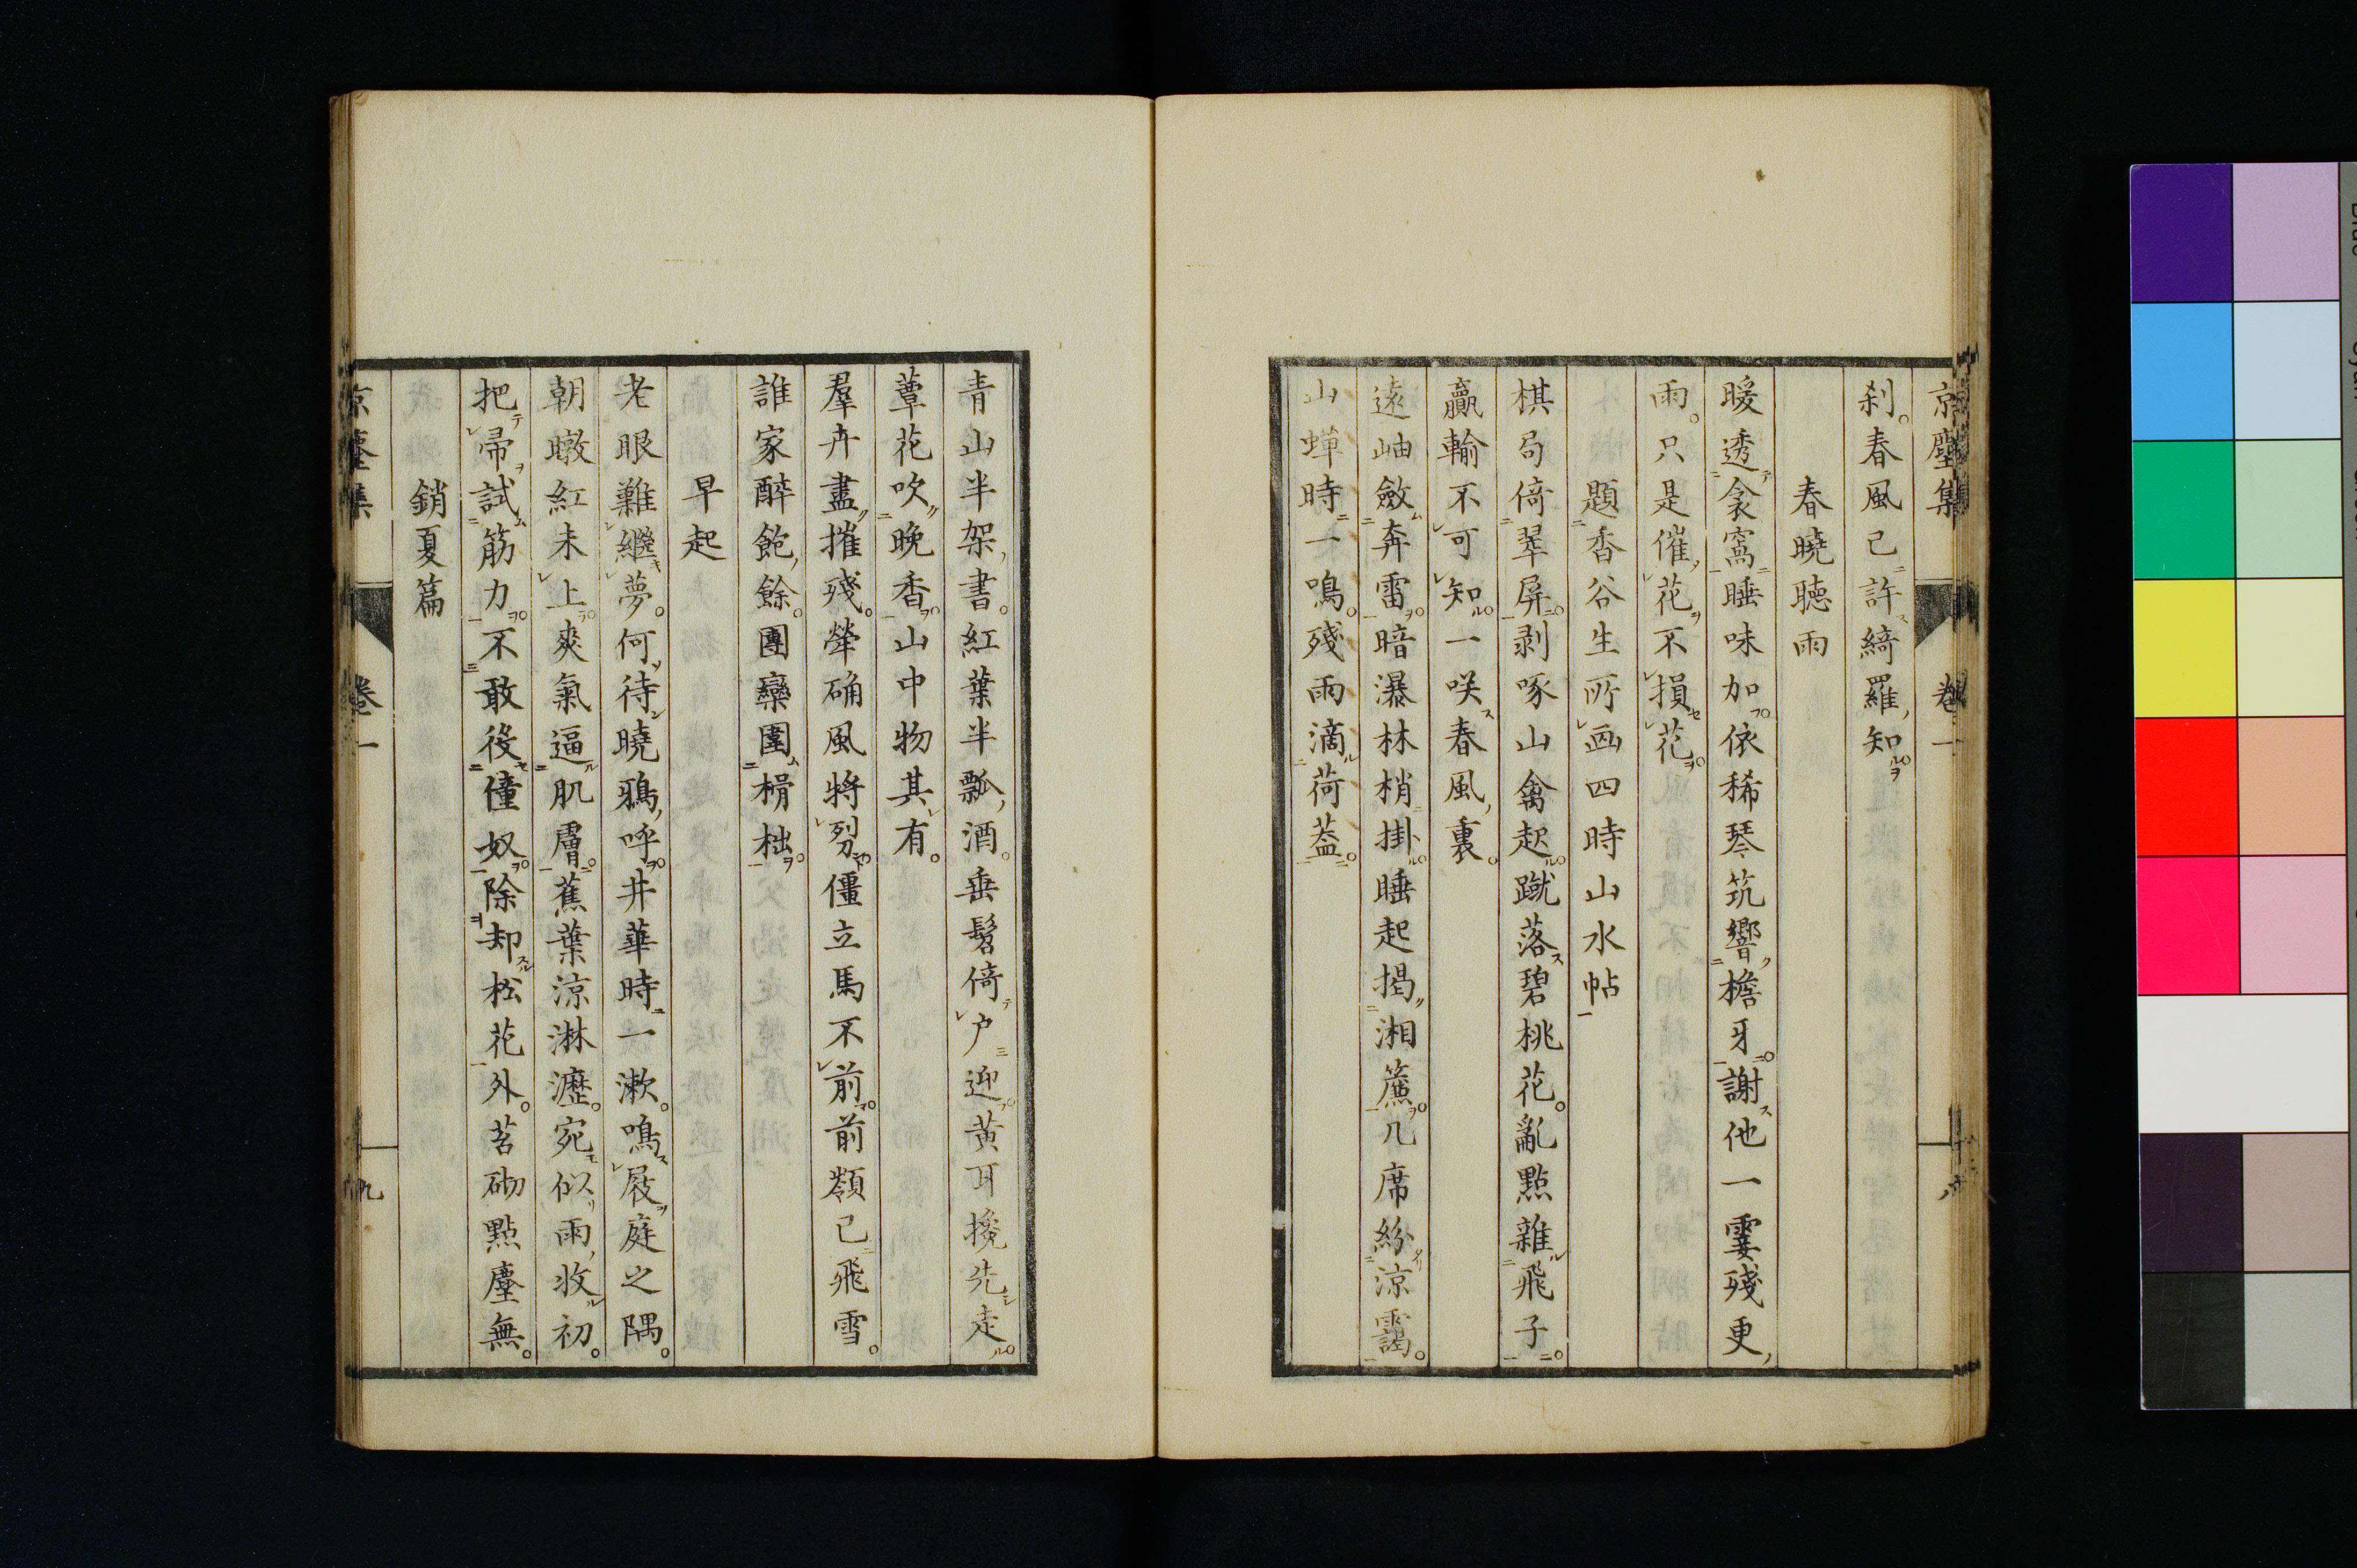 京塵集 卷一
刹。春風已許綺羅知
春曉聽雨
暖透衾窩睡味加。依稀琴筑響檐牙。謝他一霎殘更
雨。只是催花不損花。
題香谷生所画四時山水帖
棋局倚翠屏。剥啄山禽起。蹴落碧桃花。亂點雜飛子。
贏輸不可知。一咲春風裏。
遠岫斂奔雷。暗瀑林梢掛。睡起揭湘簾。几席紛涼靄。
山蟬時一鳴。殘雨滴荷蓋。
青山半架書。紅葉半瓢酒。垂髫倚户迎。黃耳攙先走。
蕈花吹晚香。山中物其有。
羣卉盡摧殘。犖确風將裂。僵立馬不前。前嶺已飛雪。
誰家醉飽餘。團欒圍榾柮。
早起
老眼難繼夢。何待曉鴉呼。井華時一漱。鳴屐庭之隅。
朝暾紅未上。爽氣逼肌膚。蕉葉涼淋瀝。宛似雨收初。
把帚試筋力。不敢役僮奴。除却松花外。苔砌點塵無。
銷夏篇
京塵集 卷一 九